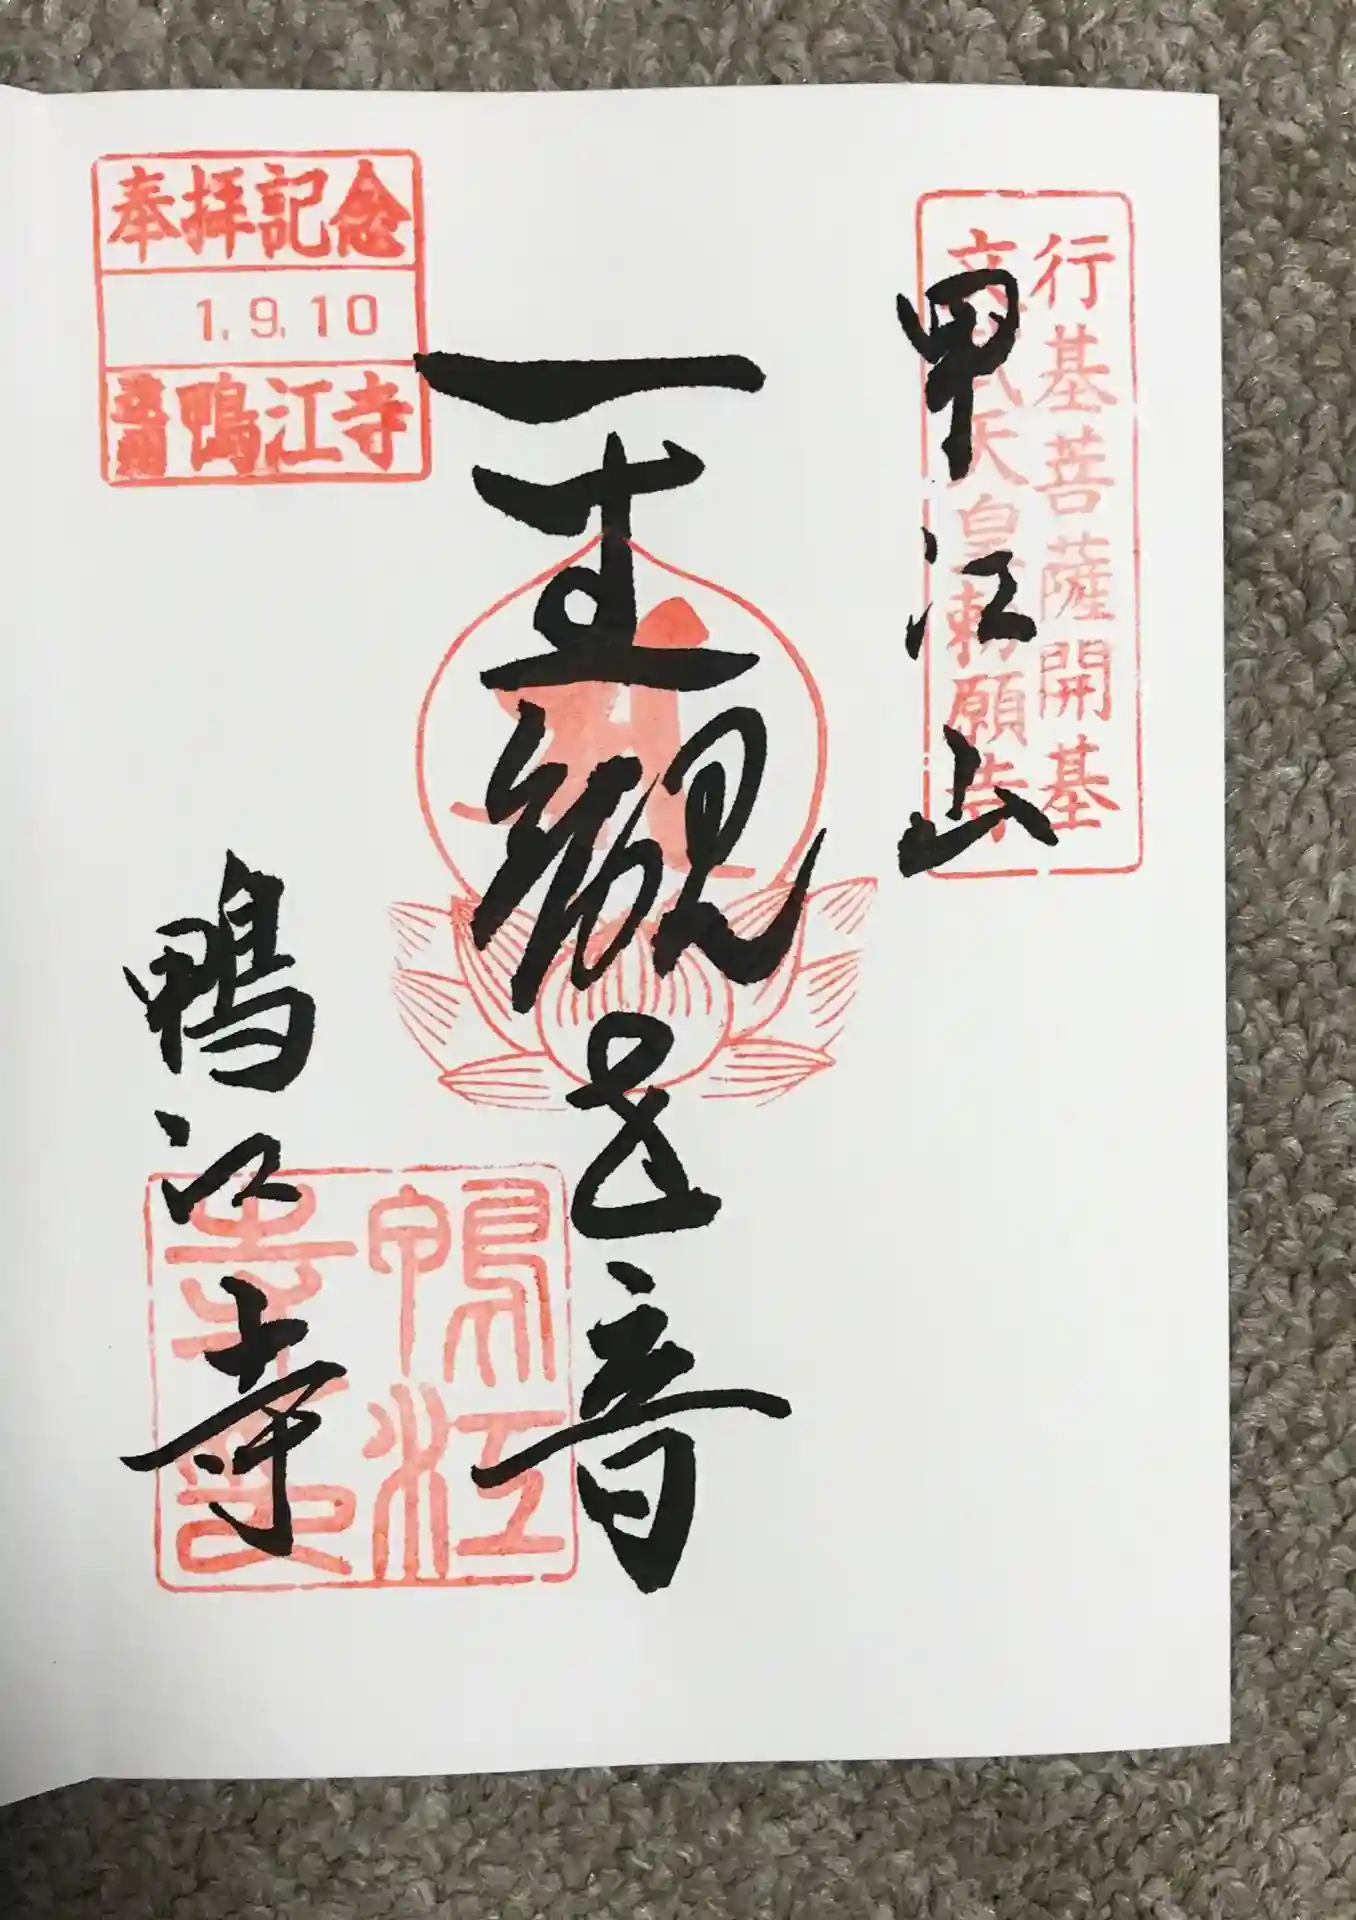 行基菩薩開基
文武天皇勅願寺
甲江山
聖観世音
鴨江寺
奉拝記念
1.9.10
遠州鴨江寺
鴨江
寺印